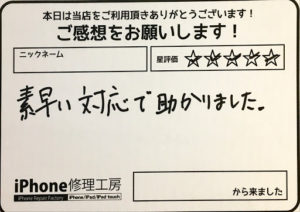 本日は当店をご利用頂きありがとうございます!
ご感想をお願いします!
ニックネーム
星評価 ☆☆☆☆☆
素早い対応で助かりました。
iPhone修理工房
iPhone Repair Factory iPhone/iPad/iPod touch
から来ました